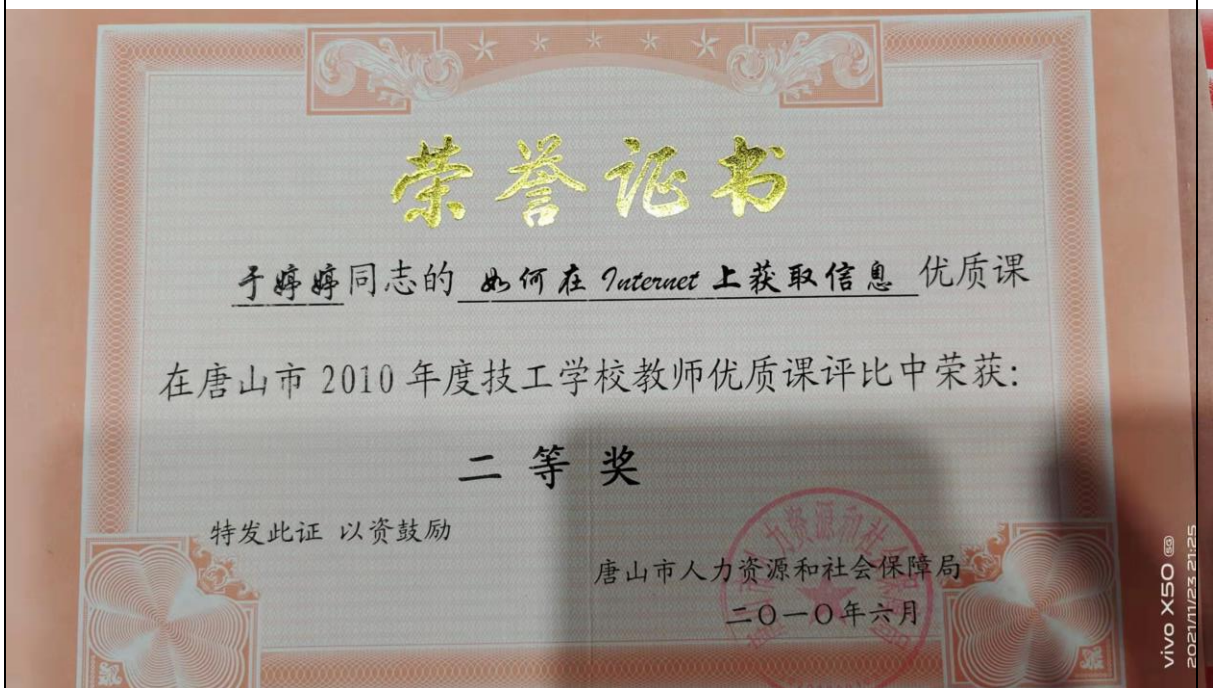 荣誉证书
于婷婷同志的 如何在 Internet 上获取信息 优质课
在唐山市 2010 年度技工学校教师优质课评比中荣获:
二等奖
特发此证 以资鼓励
唐山市人力资源和社会保障局
二〇一〇年六月
vivo X50 5G
2021/11/23 21:25